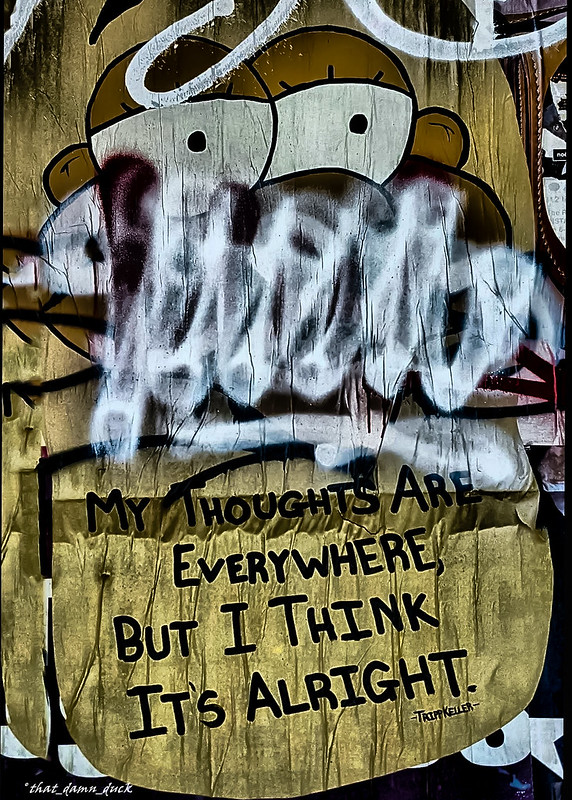 My Thoughts Are
Everywhere,
But I Think
It's Alright.
-Tripp Keller-
°that_damn_duck